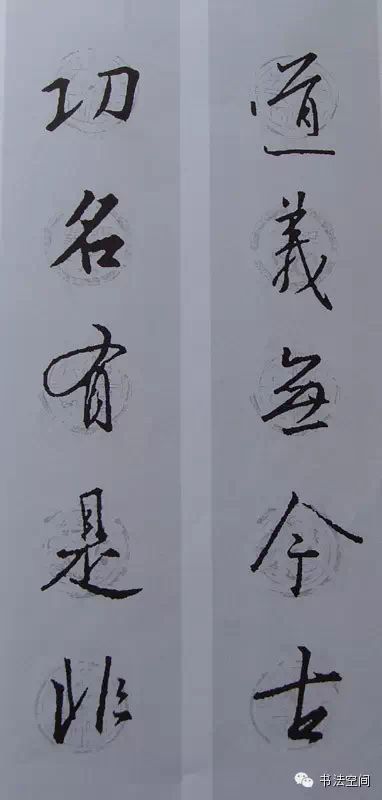 道義無今古
功名有是非
书法空间